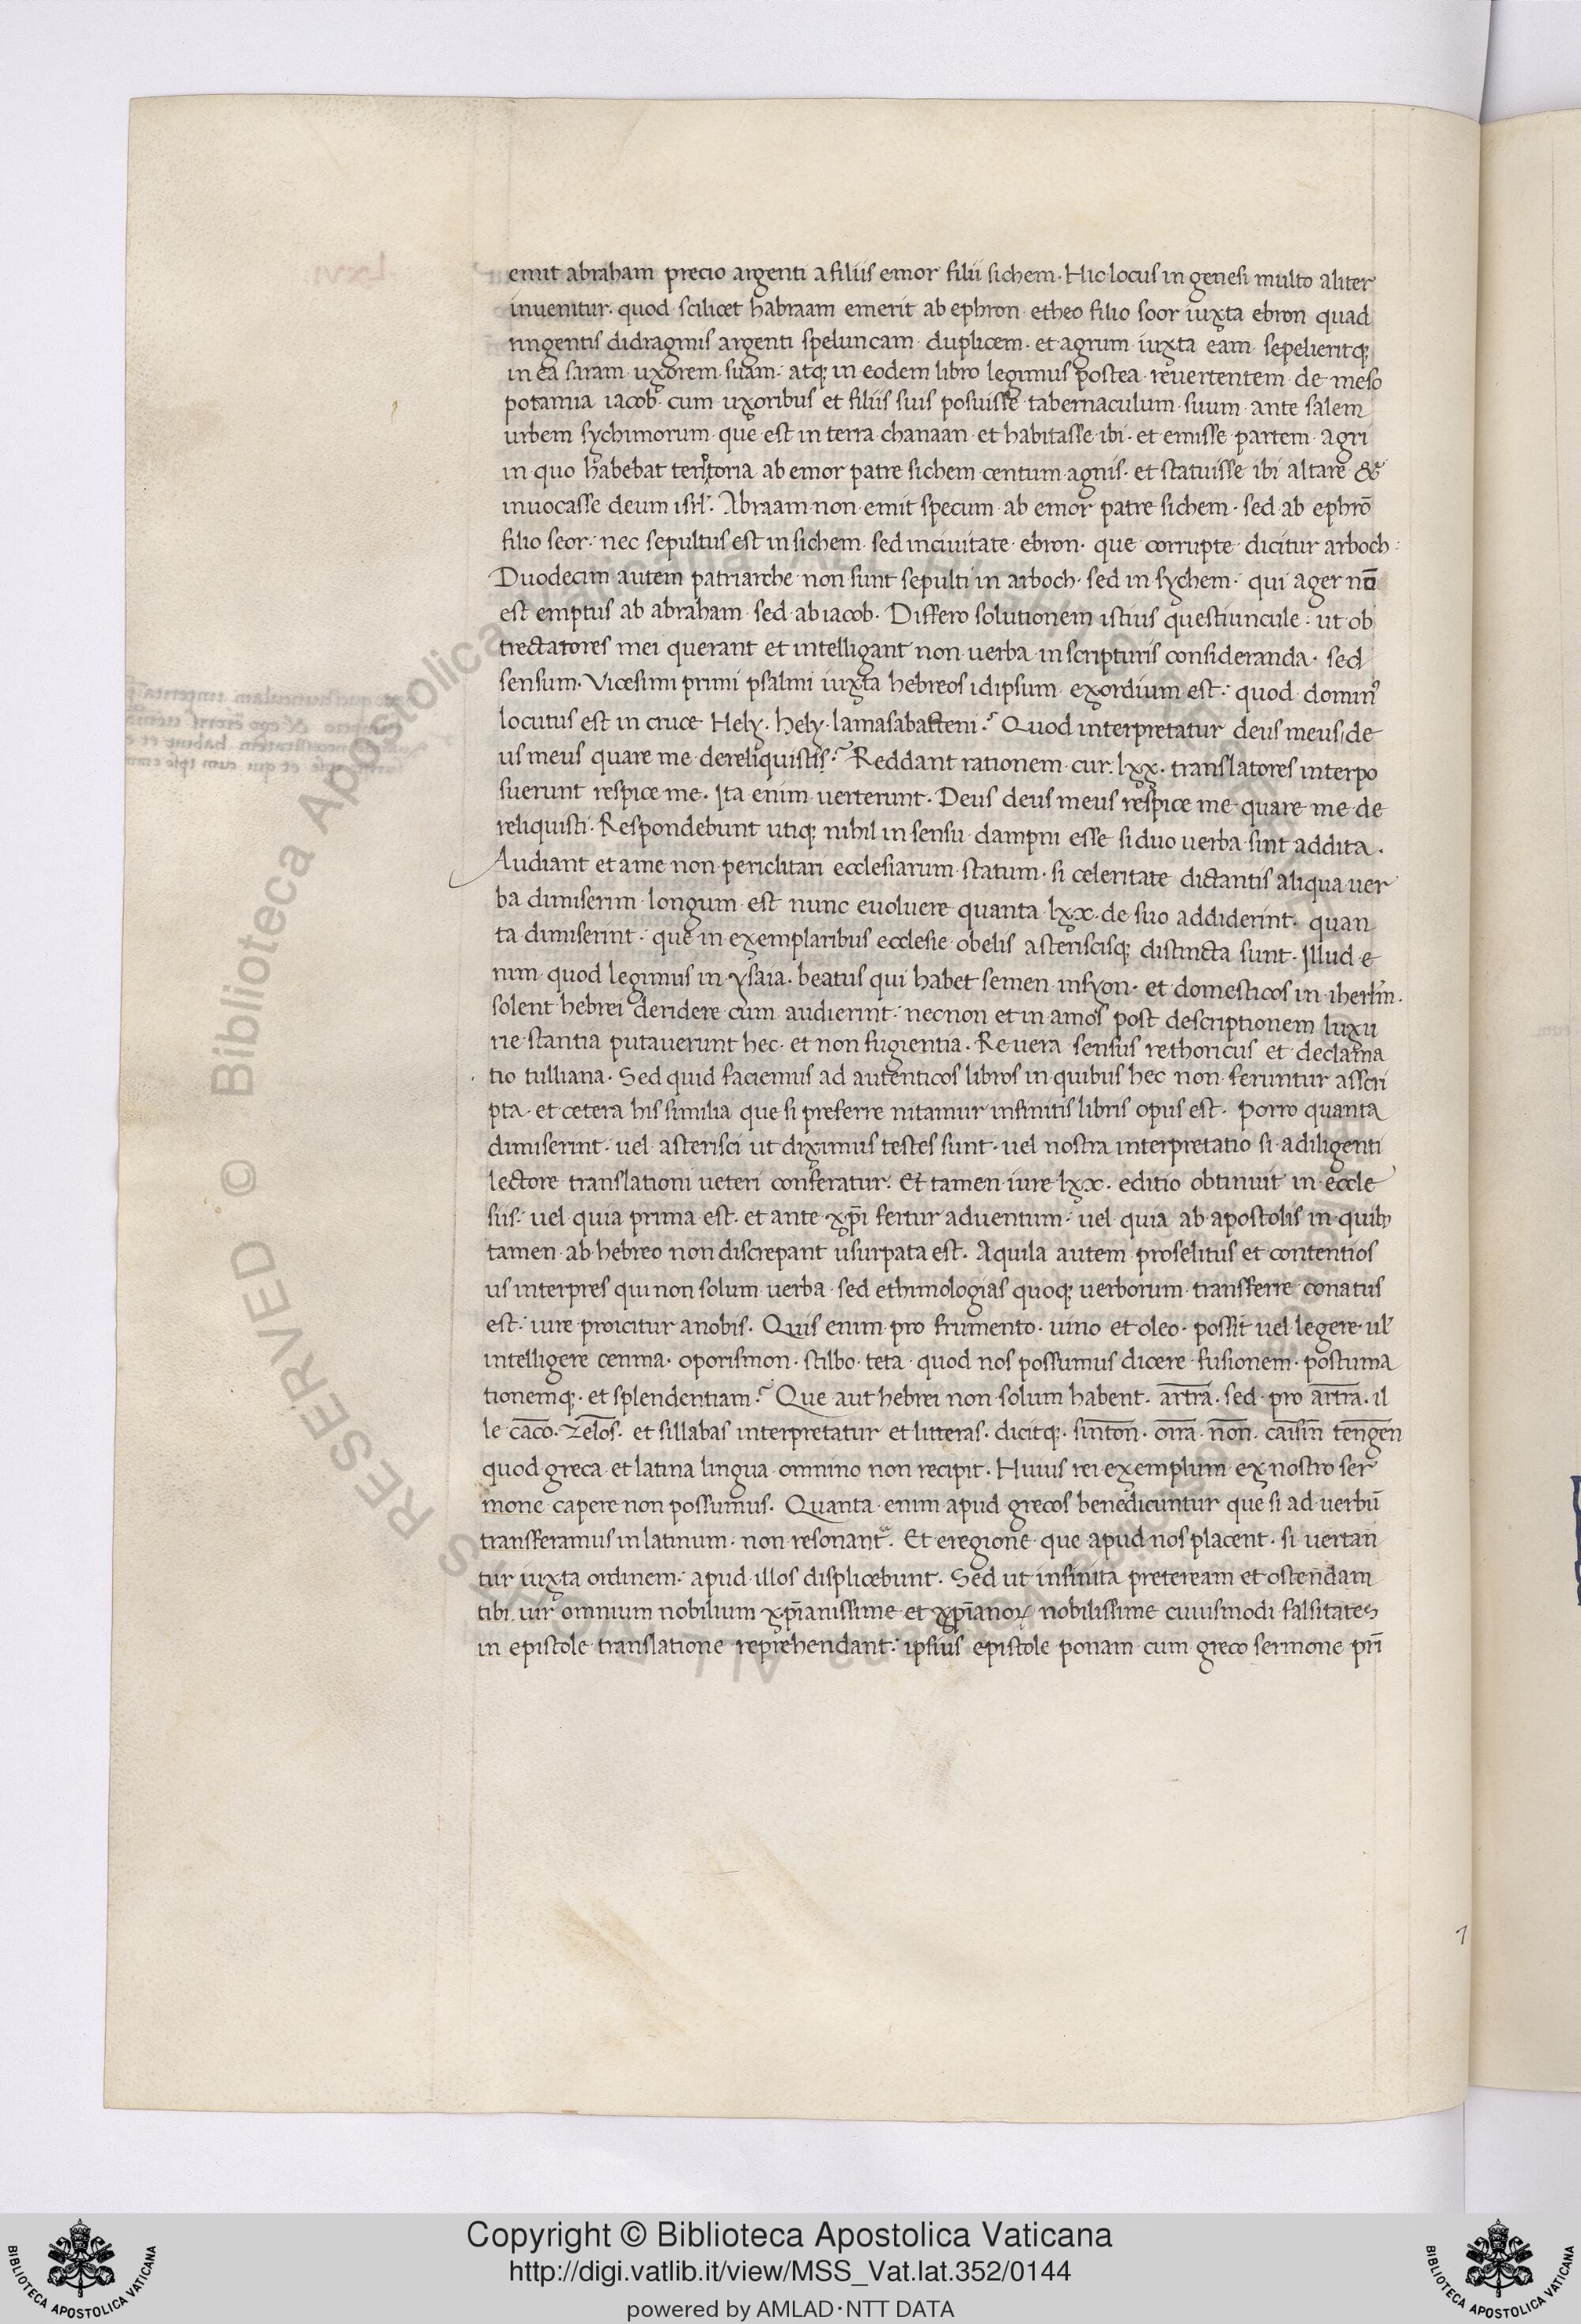 emit abraham precio argenti a filiis emor filii sichem. Hic locus in genesi multo aliter
inuenitur. quod scilicet habraam emerit ab ephron etheo filio soor iuxta ebron quad
ringentis didragmis argenti speluncam duplicem. et agrum iuxta eam sepelieritq;
in ea saram uxorem suam. atq; in eodem libro legimus postea reuertentem de meso
potamia iacob cum uxoribus et filiis suis posuisse tabernaculum suum ante salem
urbem sychimorum que est in terra chanaan et habitasse ibi. et emisse partem agri
in quo habebat tentoria ab emor patre sichem centum agnis. et statuisse ibi altare &
inuocasse deum isrl̄. Abraam non emit specum ab emor patre sichem. sed ab ephrō
filio seor. nec sepultus est in sichem sed in ciuitate ebron. que corrupte dicitur arboch.
Duodecim autem patriarche non sunt sepulti in arboch. sed in sychem. qui ager nō
est emptus ab abraham sed ab iacob. Differo solutionem istius questiuncule. ut ob
trectatores mei querant et intelligant non uerba in scripturis consideranda. sed
sensum. Vicesimi primi psalmi iuxta hebreos idipsum exordium est. quod domin⁹
locutus est in cruce Hely. hely. lamasabacteni. Quod interpretatur deus meus de
us meus quare me dereliquistis. Reddant rationem cur. lxx. translatores interpo
suerunt respice me. Ita enim uerterunt. Deus deus meus respice me quare me de
reliquisti. Respondebunt utiq; nihil in sensu dampni esse si duo uerba sint addita.
Audiant et a me non periclitari ecclesiarum statum. si celeritate dictantis aliqua uer
ba dimiserim longum est nunc euoluere quanta lxx. de suo addiderint. quan
ta dimiserint. que in exemplaribus ecclesie obelis asteriscisq; distincta sunt. Illud e
nim quod legimus in ysaia. beatus qui habet semen in syon. et domesticos in iherl̄m.
solent hebrei deridere cum audierint. necnon et in amos post descriptionem luxu
rie stantia putauerunt hec. et non fugientia. Re uera sensus rethoricus et declama
tio tulliana. Sed quid faciemus ad autenticos libros in quibus hec non feruntur asscri
pta. et cetera his similia que si preferre nitamur infinitis libris opus est. Porro quanta
dimiserint. uel asterisci ut diximus testes sunt. uel nostra interpretatio si a diligenti
lectore translationi ueteri conferatur. Et tamen iure lxx. editio obtinuit in eccle
siis. uel quia prima est. et ante xp̄i fertur aduentum. uel quia ab apostolis in quib;
tamen ab hebreo non discrepant usurpata est. Aquila autem proselitus et contentios
us interpres qui non solum uerba sed ethimologias quoq; uerborum transferre conatus
est. iure proicitur a nobis. Quis enim pro frumento. uino et oleo. possit uel legere. ul̄
intelligere ceuma. oporismon. stilbo. teta quod nos possumus dicere fusionem. postuma
tionemq;. et splendentiam. Que aut hebrei non solum habent. artra. sed pro artra. il
le caco. zelos. et sillabas interpretatur et litteras. dicitq;. sinton. oira. non. caisin tengen
quod greca et latina lingua omnino non recipit. Huius rei exemplum ex nostro ser
mone capere non possumus. Quanta enim apud grecos benedicuntur que si ad uerbū
transferamus in latinum. non resonant. Et e regione que apud nos placent. si uertan
tur iuxta ordinem. apud illos displicebunt. Sed ut infinita preteream et ostendam
tibi uir omnium nobilium xp̄ianissime et xp̄ianoꝝ nobilissime cuiusmodi falsitates
in epistole translatione reprehendant. ipsius epistole ponam cum greco sermone pri̅
Copyright © Biblioteca Apostolica Vaticana
http://digi.vatlib.it/view/MSS_Vat.lat.352/0144
powered by AMLAD·NTT DATA